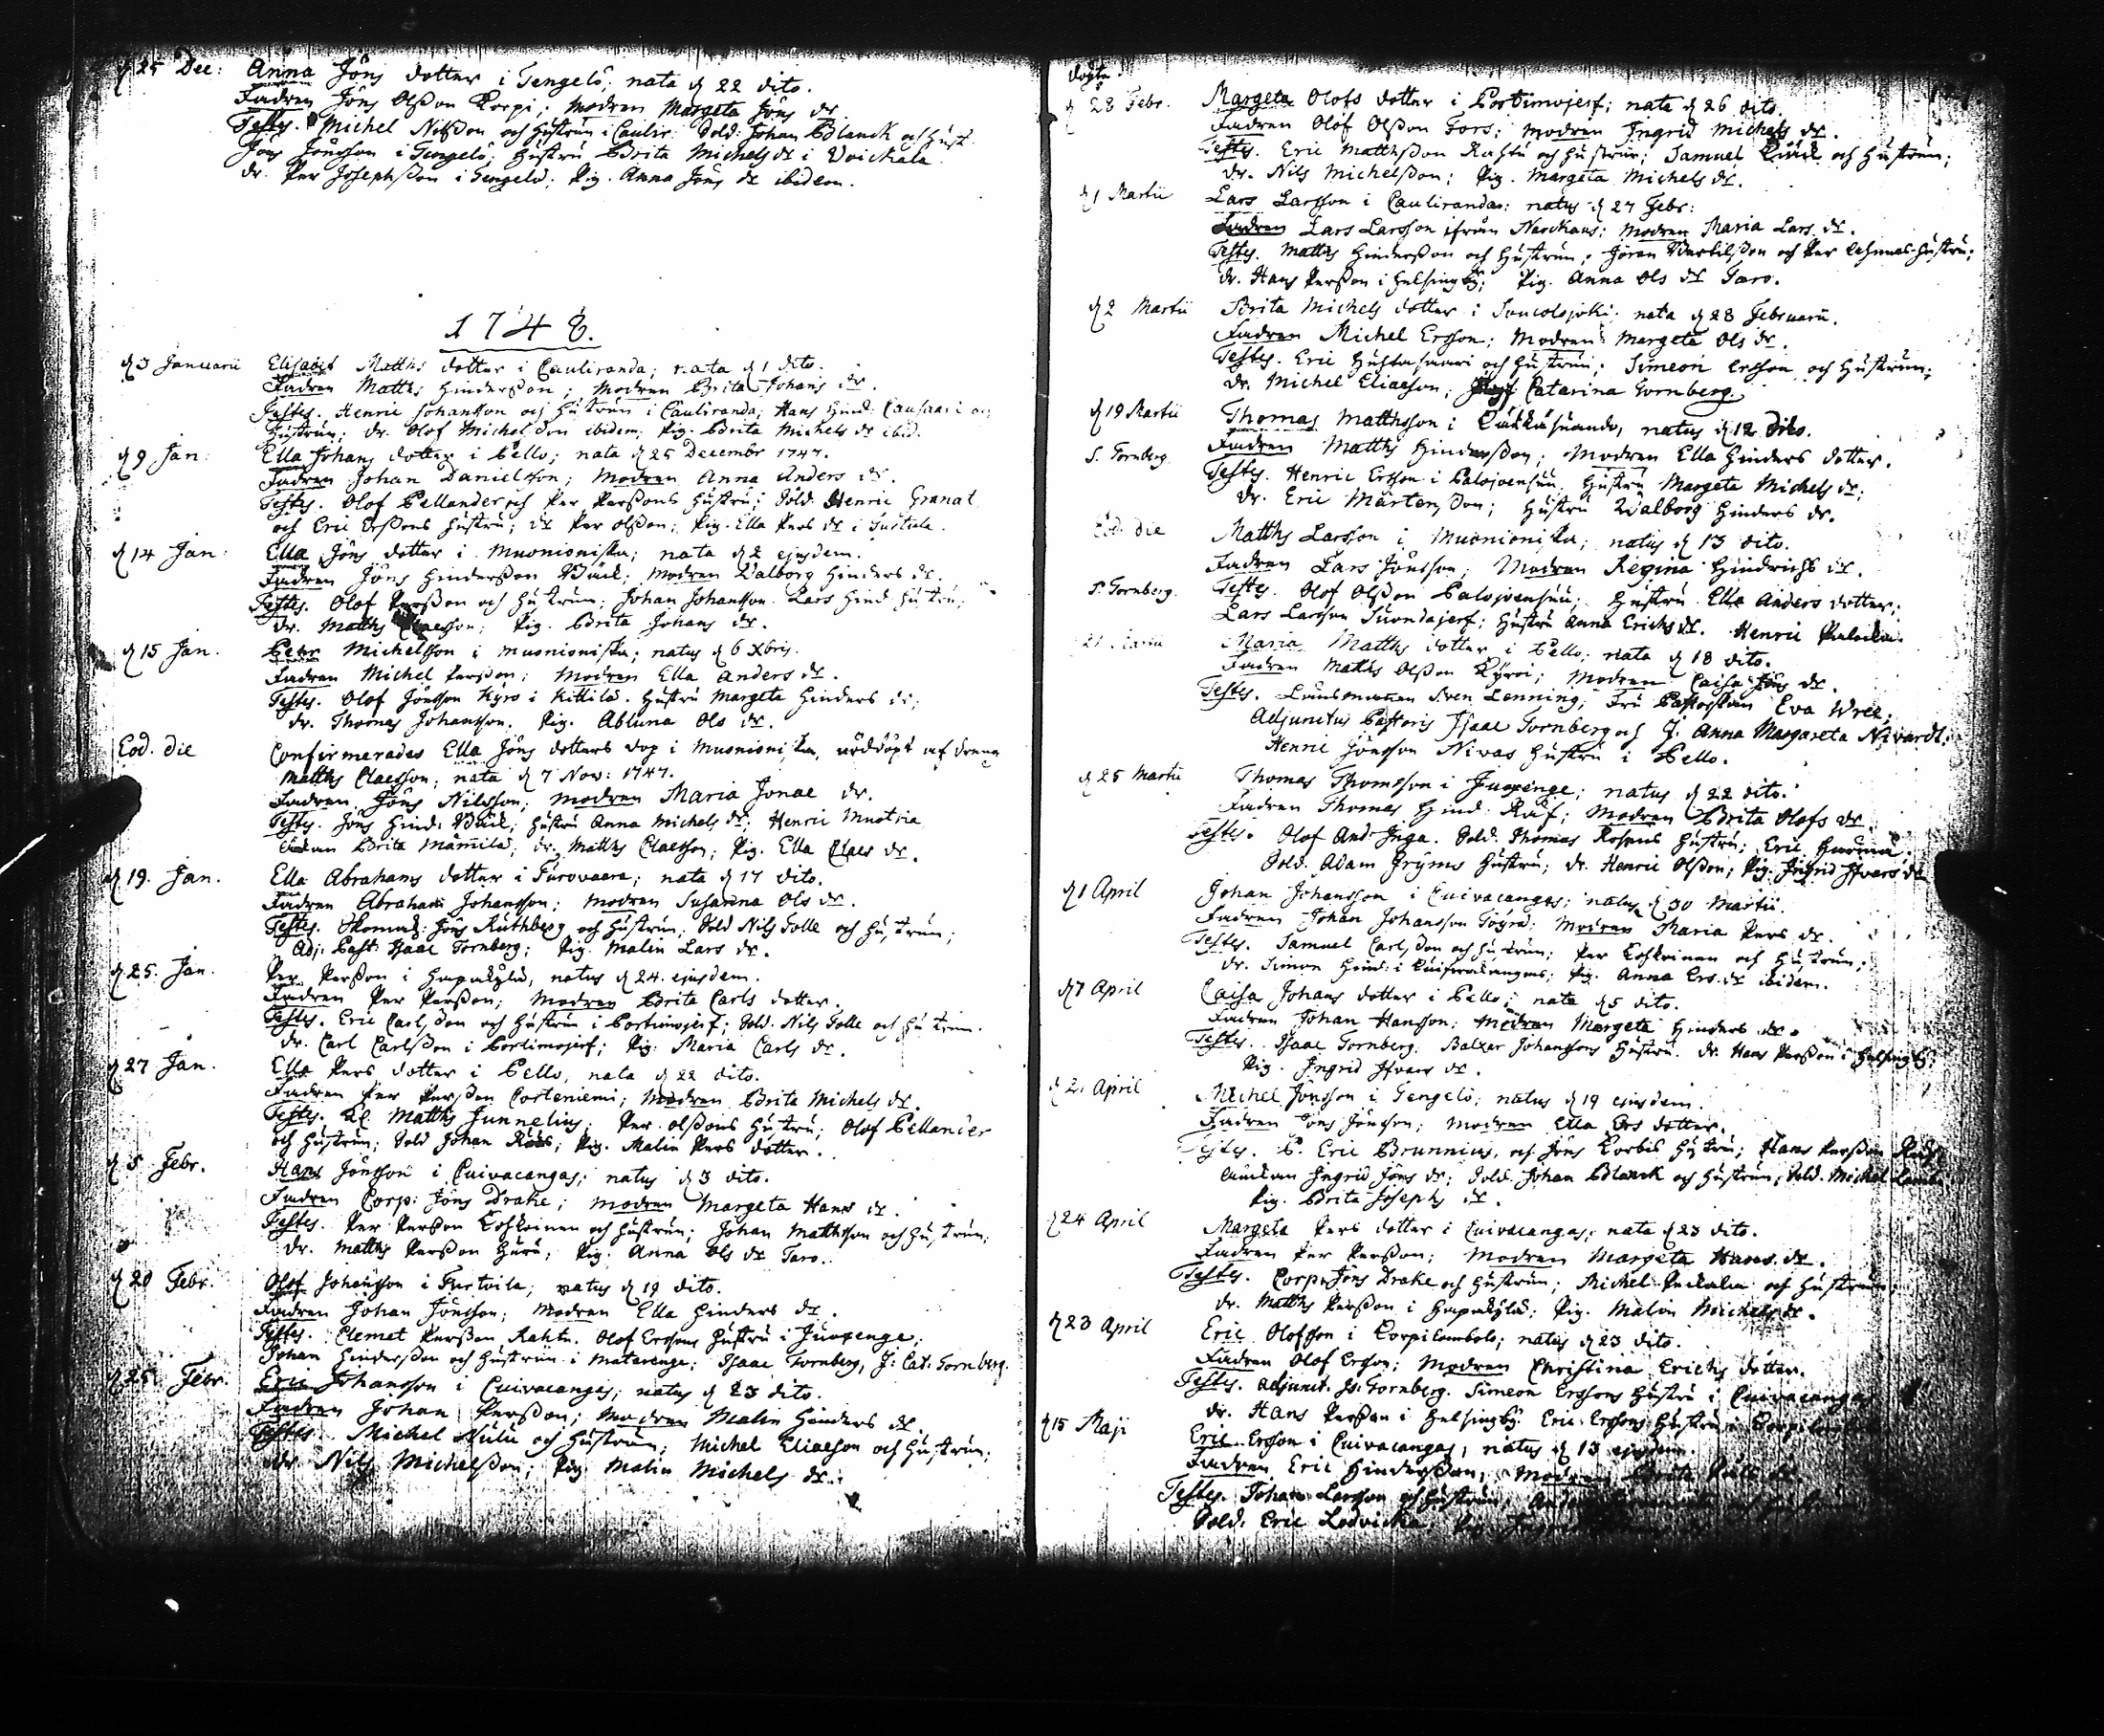 d 25 Dec: Anna Jöns dotter i Tengelö; nata d 22 dito.
Fadren Jöns Olsson Korpi; Modren Margeta Jöns dr
Testes. Michel Nilsson och Hustrun i Caulir. Sold: Johan Blanck och Hust
Jöns Jönsson i Tengelö; Hustru Brita Michels dr i Voickala
dr. Per Josephsson i Tengelö; Pig. Anna Jöns dr ibidem.
1748.
d 3 Januarii Elisabet Matths dotter i Cauliranda; nata d 1 dito.
Fadren Matths Hindersson; Modren Brita Johans dr.
Testes. Henric Johansson och Hustrun i Cauliranda; Hans Hind: Causaari oc
Hustrun; dr. Olof Michelsson ibidem; Pig. Brita Michels dr ibid.
d 9 Jan: Ella Johans dotter i Pello; nata d 25 Decembr 1747.
Fadren Johan Danielsson; Modren Anna Anders dr.
Testes. Olof Pellander och Per Perssons Hustru; Sold: Henric Granat
och Eric Erssons Hustru; dr Per Olsson; Pig. Ella Pers dr i Turtola.
d 14 Jan: Ella Jöns dotter i Muonioniska; nata d 2 ejusdem.
Fadren Jöns Hindersson Bäck; Modren Valborg Hinders dr.
Testes. Olof Persson och Hustrun; Johan Johansson. Lars Hind. Hustru;
dr. Matths Claesson; Pig. Brita Johans dr.
d 15 Jan. Pehr Michelsson i Muonioniska; natus d 6 Xbris.
Fadren Michel Persson; Modren Ella Anders dr.
Testes. Olof Jönsson Kyrö i Kittilä. Hustru Margeta Hinders dr;
dr. Thomas Johansson. Pig. Abluna Ols dr.
Eod. die Confirmerades Ella Jöns dotters dop i Muonioniska, nöddöpt af dreng
Matths Claesson; nata d 7 Nov: 1747.
Fadren Jöns Nilsson; Modren Maria Jonae dr.
Testes. Jöns Hind: Bäck; Hustru Anna Michels dr; Henric Muotria
Enkan Brita Mämilä; dr. Matths Claesson; Pig. Ella Claes dr.
d 19. Jan. Ella Abrahams dotter i Turovaara; nata d 17 dito.
Fadren Abraham Johansson; Modren Susanna Ols dr.
Testes. Skomak: Jöns Ruthberg och Hustrun; Sold Nils Tolle och Hustrun;
Adj: Past: Isaac Tornberg; Pig. Malin Lars dr.
d 25. Jan. Per Persson i Haapakylä, natus d 24. ejusdem.
Fadren Per Persson; Modren Brita Carls dotter.
Testes. Eric Carlsson och Hustrun i Portimojerf; Sold. Nils Tolle och Hustrun.
dr. Carl Carlsson i Portimojerf; Pig. Maria Carls dr.
d 27 Jan. Ella Pers dotter i Pello, nata d 22 dito.
Fadren Per Persson Corteniemi; Modren Brita Michels dr.
Testes. Matths Junnelius; Per Olssons Hustru; Olof Pellander
och Hustrun; Sold Johan; Pig. Malin Pers dotter.
d 5 Febr. Hans Jönsson i Cuivacangas; natus d 3 dito.
Fadren Corp: Jöns Drake; Modren Margeta Hans dr.
Testes. Per Persson Koskoinen och Hustrun; Johan Mathsson och Hustrun;
dr. Matths Persson Huru; Pig. Anna Ols dr Taro.
d 20 Febr. Olof Johansson i Turtola; natus d 19 dito.
Fadren Johan Jönsson; Modren Ella Hinders dr.
Testes. Clemet Persson Rahtu. Olof Erssons Hustru i Juoxenge;
Johan Hindersson och Hustrun i Matarenge; Isaac Tornberg, J: Cat: Tornberg.
d 25 Febr. Eric Johansson i Cuivacangas; natus d 23 dito.
Fadren Johan Persson; Modren Malin Hinders dr.
Testes. Michel Niulu och Hustrun; Michel Eliaeson och Hustrun;
dr Nils Michelsson; Pig. Malin Michels dr.
döpte.
d 28 Febr. Margeta Olofs dotter i Portimojerf; nata d 26 dito.
Fadren Olof Olsson Fors; Modren Ingrid Michels dr.
Testes. Eric Matthsson Rahtu och Hustrun; Samuel och Hustrun;
dr. Nils Michelsson; Pig. Margeta Michels dr.
d 1 Martii Lars Larsson i Caulirandas; natus d 27 Febr:
Fadren Lars Larsson ifrån Narckaus; Modren Maria Lars dr.
Testes. Matths Hindersson och Hustrun; Jöran Bertilsson och Per Lehmas Hustru;
dr. Hans Persson i Helsingby; Pig. Anna Ols dr Taro.
d 2 Martii Brita Michels dotter i Succolojoki; nata d 28 Februarii.
Fadren Michel Ersson; Modren Margeta Ols dr.
Testes. Eric Huhtasaari och Hustrun; Simeon Ersson och Hustrun;
dr. Michel Eliaeson; Catarina Tornberg.
d 19 Martii Thomas Matthsson i Käckäsuando, natus d 12 dito.
S. Tornberg. Fadren Matths Hindersson; Modren Ella Hinders dotter.
Testes. Henric Ersson i Palojoensuu. Hustru Margeta Michels dr;
dr. Eric Mårtensson; Hustru Walborg Hinders dr.
Eod. die Matths Larsson i Muonioniska; natus d 13 dito.
Fadren Lars Jönsson; Modren Regina Hindrichs dr.
S. Tornberg. Testes. Olof Olsson Palojoensuu; Hustru Ella Anders dotter;
Lars Larsson Suondajerf; Hustru Anna Erichs dr. Henric
21 Martii Maria Matths dotter i Pello; nata d 18 dito.
Fadren Matths Olsson Kyrö; Modren Caisa Jöns dr.
Testes. Länsmannen Sven Lenning; Fru Pastorskan Eva Wree;
Adjunctus Pastoris Isaac Tornberg och J: Anna Margareta Nivardt.
Henric Jönsson Nivas Hustru i Pello.
d 25 Martii Thomas Thomsson i Juoxenge; natus d 22 dito.
Fadren Thomas Hind: Räf; Modren Brita Olofs dr.
Testes. Olof And: Inga. Sold. Thomas Hustru; Eric
Sold. Adam Gryms Hustru; dr. Henric Olsson; Pig. Ingrid Ifvars dr
d 1 April Johan Johansson i Cuivacangas; natus d 30 Martii.
Fadren Johan Johansson Töyrä; Modren Maria Pers dr.
Testes. Samuel Carlsson och Hustrun; Per Koskoinen och Hustrun;
dr. Simon Hind: i Cuivacangas; Pig. Anna Ers dr ibidem.
d 7 April Caisa Johans dotter i Pello; nata d 5 dito.
Fadren Johan Hansson; Modren Margeta Hinders dr.
Testes. Isaac Tornberg. Balzar Johanssons Hustru. dr. Hans Persson i Helsingby;
Pig. Ingrid Ifvars dr.
d 21 April Michel Jönsson i Tengelö; natus d 19 ejusdem.
Fadren Jöns Jönsson; Modren Ella Ers dotter.
Testes. Eric Brunnius, och Jöns Korbis Hustru; Hans Persson
Enckan Ingrid Jöns dr; Sold. Johan Blanck och Hustrun; Sold. Michel
Pig. Brita Josephs dr.
d 24 April Margeta Pers dotter i Cuivacangas; nata d 23 dito.
Fadren Per Persson; Modren Margeta Hans dr.
Testes. Corp: Jöns Drake och Hustrun; Michel och Hustrun;
dr. Matths Persson i Haapakylä; Pig. Malin Michels dr.
d 23 April Eric Olofsson i Korpilombolo; natus d 23 dito.
Fadren Olof Ersson; Modren Christina Erichs dotter.
Testes. Adjunct. Is: Tornberg. Simeon Erssons Hustru i Cuivacangas
dr. Hans Persson i Helsingby. Eric Erssons Hustru i
d 15 Maji Eric Ersson i Cuivacangas; natus d 13 ejusdem.
Fadren Eric Hindersson; Modren Brita
Testes. Johan Larsson och Hustrun;
Sold: Eric Lodvicka; Pig. Ingrid